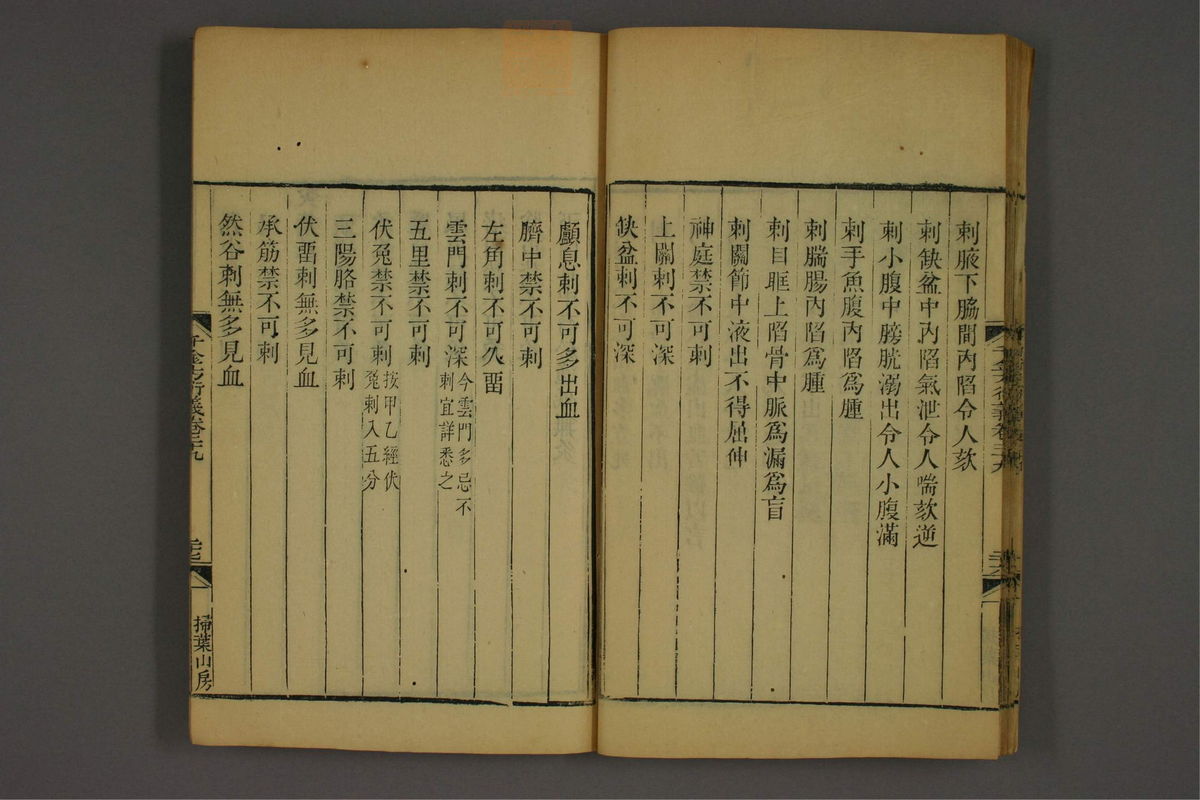 刺腋下脇間內陷令人欬
刺缺盆中內陷氣泄令人喘欬逆
刺小腹中膀胱溺出令人小腹滿
刺手魚腹內陷爲腫
刺腨腸內陷爲腫
刺目眶上陷骨中脈爲漏爲盲
刺關節中液出不得屈伸
神庭禁不可刺
上關刺不可深
缺盆刺不可深
顱息刺不可多出血
臍中禁不可刺
左角刺不可久畱
雲門刺不可深
今雲門多忌不
刺宜詳悉之
五里禁不可刺
伏兔禁不可刺
按甲乙經伏
兔刺入五分
三陽胳禁不可刺
伏畱刺無多見血
承筋禁不可刺
然谷刺無多見血
千金方衍義卷二十九
掃葉山房